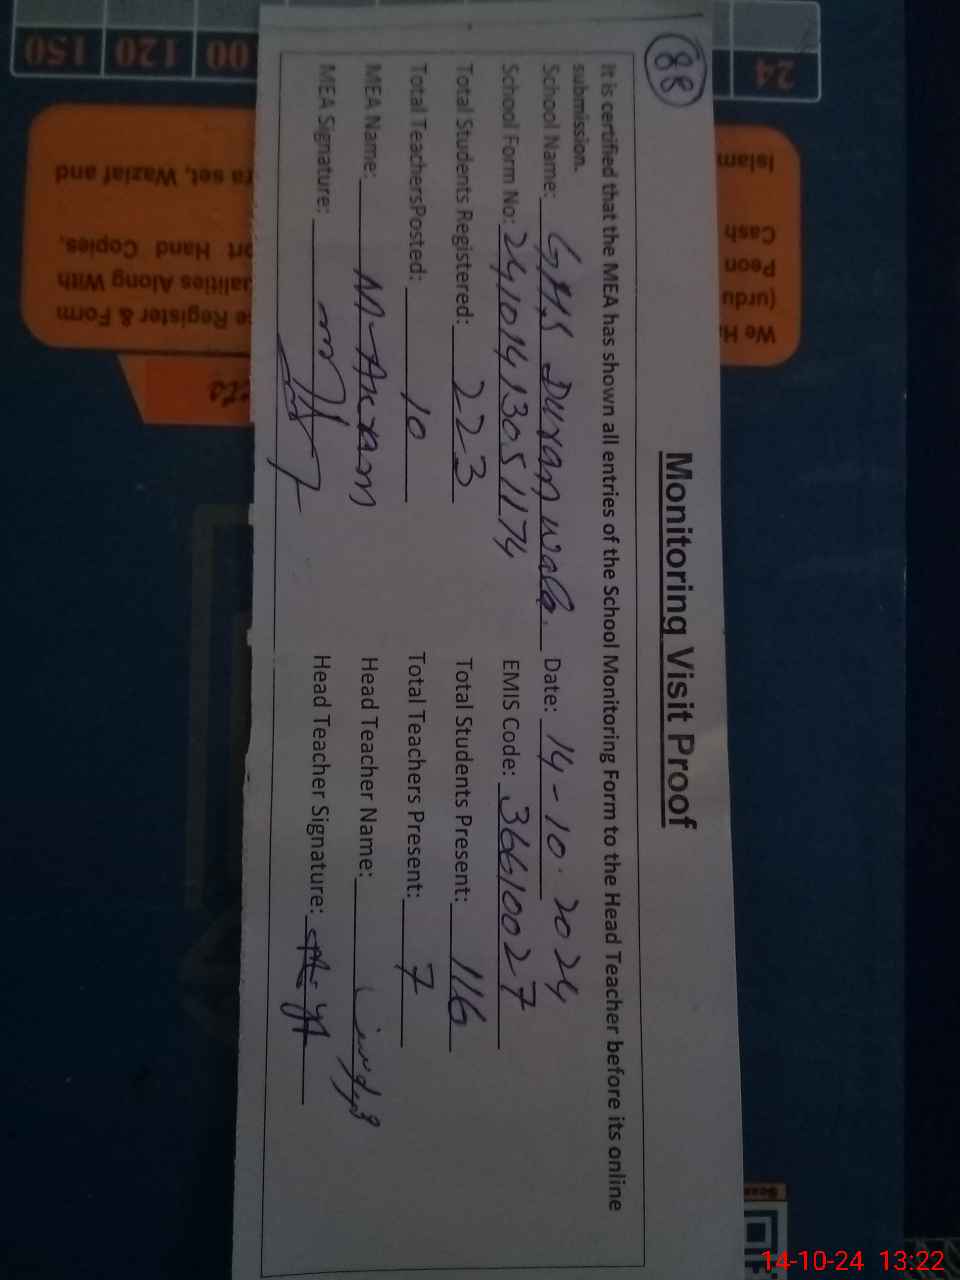 88
Monitoring Visit Proof
It is certified that the MEA has shown all entries of the School Monitoring Form to the Head Teacher before its online
submission.
School Name: GHS Duran wala. Date: 14-10-2024
School Form No: 24101413051174 EMIS Code: 36610027
Total Students Registered: 223 Total Students Present: 116
Total TeachersPosted: 10 Total Teachers Present: 7
MEA Name: M-Akram Head Teacher Name:
MEA Signature: Head Teacher Signature:
24
00 120 150
Islam
Cash
Peon
(urdu
We H
ra set, Waziaf and
ort Hand Copies,
ualities Along With
e Register & Form
14-10-24 13:22